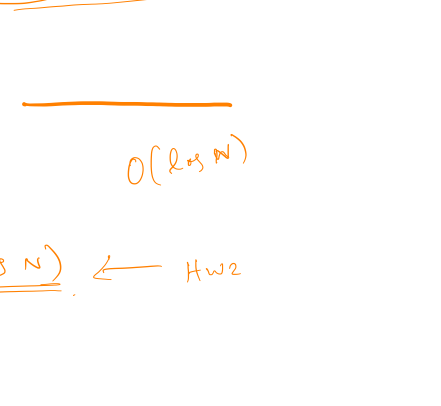 O(log N)
g N) ← HW2